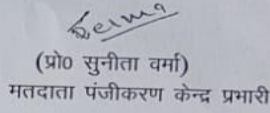 (प्रो० सुनीता वर्मा)
मतदाता पंजीकरण केन्द्र प्रभारी